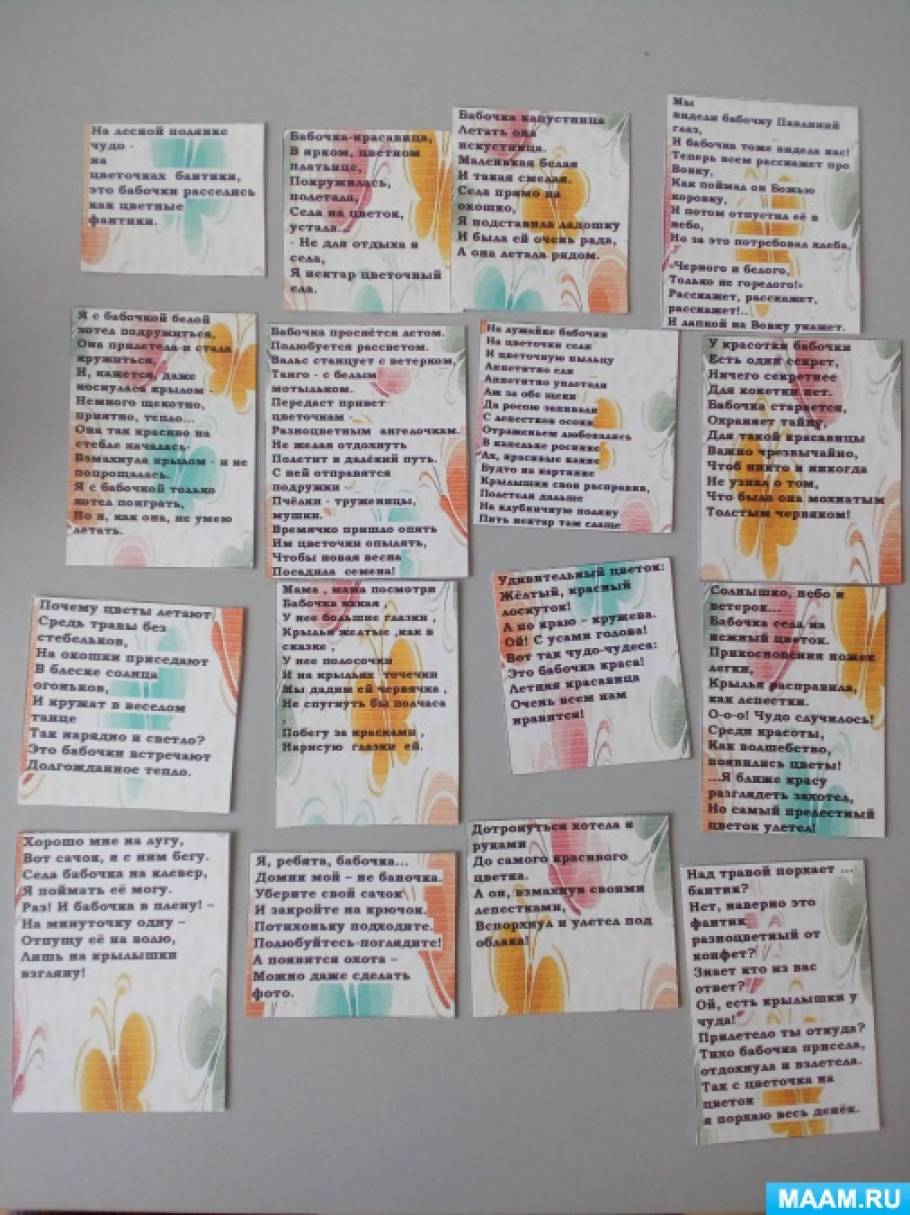 На лесной полянке
чудо -
на
цветочках бантики,
это бабочки расселись
как цветные
фантики.
Бабочка-красавица,
В ярком, цветном
платьице,
Покружилась,
полетала,
Села на цветок,
устала...
- Не для отдыха я
села,
Я нектар цветочный
ела.
Бабочка капустница
Летать она
искустница.
Маленькая белая
И такая смелая.
Села прямо на
окошко,
Я подставила ладошку
И была ей очень рада,
А она летала рядом.
Мы
видели бабочку Павлиний
глаз,
И бабочка тоже видела нас!
Теперь всем расскажет про
Вовку,
Как поймал он Божью
коровку,
И потом отпустил её в
небо,
Но за это потребовал хлеба,
«Черного и белого,
Только не горелого!»
Расскажет, расскажет,
расскажет!..
И лапкой на Вовку укажет.
Я с бабочкой белой
хотел подружиться,
Она прилетела и стала
кружиться,
И, кажется, даже
коснулась крылом -
Немного щекотно,
приятно, тепло...
Она так красиво на
стебле качалась-
Взмахнула крылом - и не
попрощалась.
Я с бабочкой только
хотел поиграть,
Но я, как она, не умею
летать.
Бабочка проснётся летом.
Полюбуется рассветом.
Вальс станцует с ветерком,
Танго - с белым
мотыльком.
Передаст привет
цветочкам -
Разноцветным ангелочкам.
Не желая отдохнуть
Полетит в далёкий путь.
С ней отправятся
подружки -
Пчёлки - труженицы,
мушки.
Времячко пришло опять
Им цветочки опылять,
Чтобы новая весна
Посадила семена!
На лужайке бабочки
На цветочки сели
И цветочную пыльцу
Аппетитно ели
Аппетитно уплетали
Аж за обе щеки
Да росою запивали
С лепестков осоки
Отраженьем любовались
В капельке росинке
Ах, красивые какие
Будто на картинке
Крылышки свои расправив,
Полетели дальше
На клубничную поляну
Пить нектар там слаще
У красотки бабочки
Есть один секрет,
Ничего секретнее
Для кокетки нет.
Бабочка старается,
Охраняет тайну,
Для такой красавицы
Важно чрезвычайно,
Чтоб никто и никогда
Не узнал о том,
Что была она мохнатым
Толстым червяком!
Почему цветы летают
Средь травы без
стебельков,
На окошки приседают
В блеске солнца
огоньков,
И кружат в веселом
танце
Так нарядно и светло?
Это бабочки встречают
Долгожданное тепло.
Мама , мама посмотри
Бабочка какая ,
У нее большие глазки ,
Крылья желтые ,как в
сказке ,
У нее полосочки
И на крыльях точечки
Мы дадим ей червячка ,
Не спугнуть бы полчаса
,
Побегу за красками ,
Нарисую глазки ей.
Удивительный цветок:
Жёлтый, красный
лоскуток!
А по краю - кружева.
Ой! С усами голова!
Вот так чудо-чудеса:
Это бабочка краса!
Летняя красавица
Очень всем нам
нравится!
Солнышко, небо и
ветерок...
Бабочка села на
нежный цветок.
Прикосновения ножек
легки,
Крылья расправила,
как лепестки.
О-о-о! Чудо случилось!
Среди красоты,
Как волшебство,
появились цветы!
...Я ближе красу
разглядеть захотел,
Но самый прелестный
цветок улетел!
Хорошо мне на лугу,
Вот сачок, я с ним бегу.
Села бабочка на клевер,
Я поймать её могу.
Раз! И бабочка в плену! –
На минуточку одну –
Отпущу её на волю,
Лишь на крылышки
взгляну!
Я, ребята, бабочка...
Домик мой – не баночка.
Уберите свой сачок
И закройте на крючок.
Потихоньку подходите.
Полюбуйтесь-поглядите!
А появится охота –
Можно даже сделать
фото.
Дотронуться хотела я
руками
До самого красивого
цветка.
А он, взмахнув своими
лепестками,
Вспорхнул и улетел под
облака!
Над травой порхает ...
бантик?
Нет, наверно это
фантик
разноцветный от
конфет?
Знает кто из вас
ответ?
Ой, есть крылышки у
чуда!
Прилетело ты откуда?
Тихо бабочка присела,
отдохнула и взлетела.
Так с цветочка на
цветок
я порхаю весь денёк.
MAAM.RU